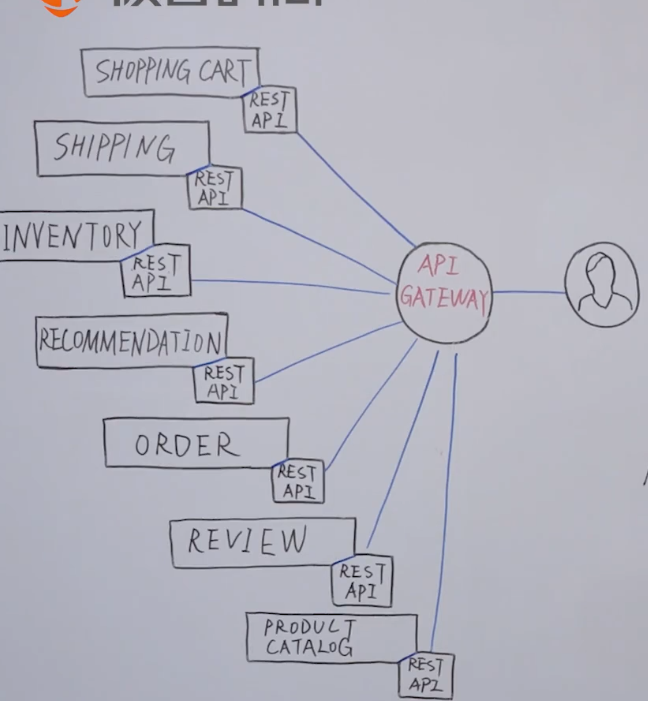 SHOPPING CART
REST
API
SHIPPING
REST
API
INVENTORY
REST
API
API
GATEWAY
RECOMMENDATION
REST
API
ORDER
REST
API
REVIEW
REST
API
PRODUCT
CATALOG
REST
API